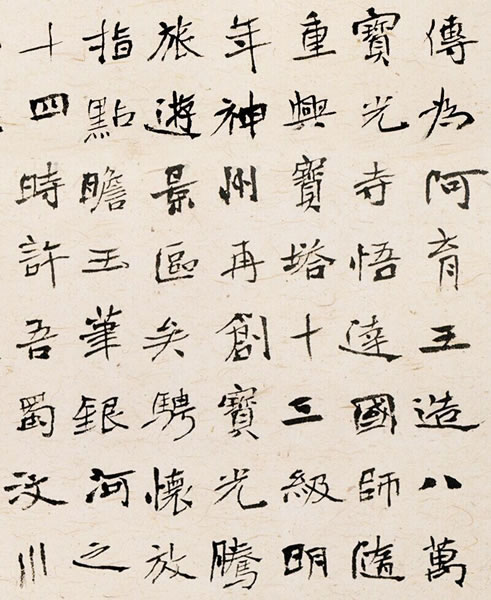 傳為阿育王造八萬
寶光寺悟達國師隨
重興寶塔十三級明
年神州再創寶光騰
旅遊景區矣騁懷放
指點瞻玉筆銀河之
十四時許吾蜀汶川